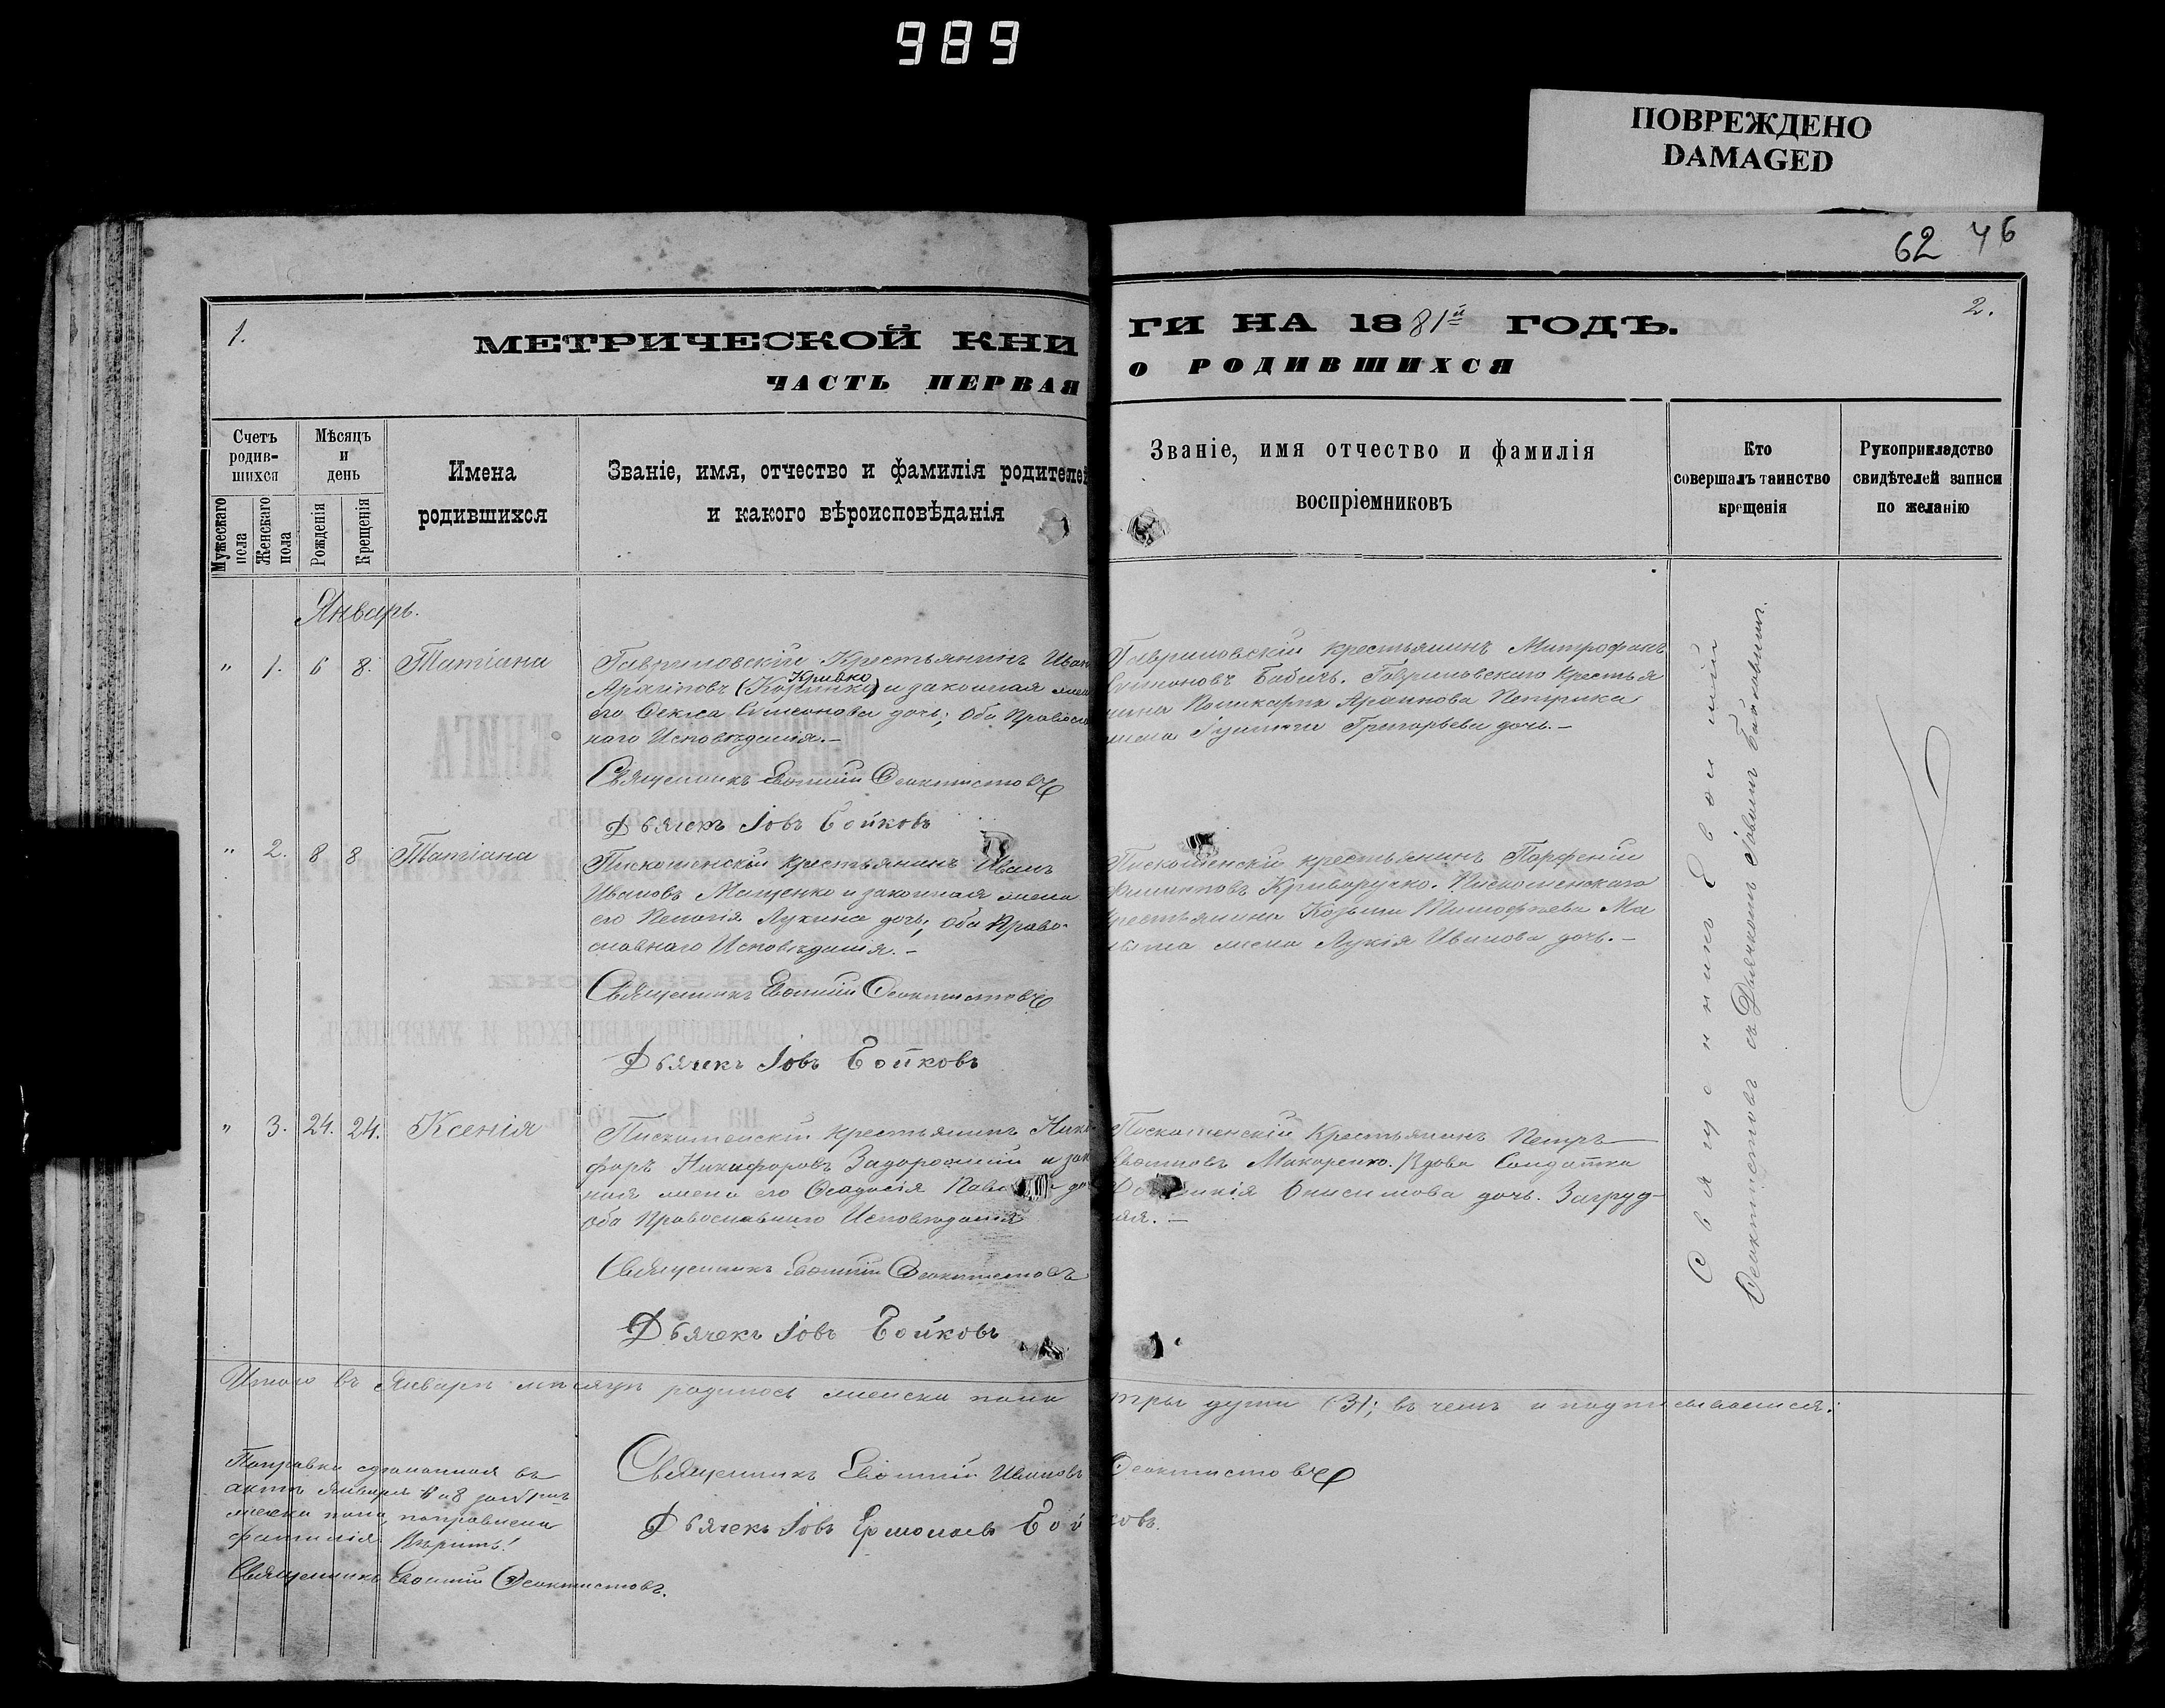 989
ПОВРЕЖДЕНО
DAMAGED
62 46
1.
2.
МЕТРИЧЕСКОЙ КНИ
ГИ НА 1881й ГОДЪ.
ЧАСТЬ ПЕРВАЯ
О РОДИВШИХСЯ
Счетъ родив-шихся
Мужескаго пола
Женскаго пола
Мѣсяцъ и день
Рожденія
Крещенія
Имена родившихся
Званіе, имя, отчество и фамилія родителей
и какого вѣроисповѣданія
Званіе, имя отчество и фамилія
воспріемниковъ
Кто
совершалъ таинство
крещенія
Рукоприкладство
свидѣтелей записи
по желанію
Январь.
" 1. 6 8. Татіана
Гавриловскій Крестьянинъ Иванъ
Кривко
и законная жена
его Ѳекла Симеонова дочь; оба Православ
наго Исповѣданія.—
Священникъ Евѳимій Ѳеоктистовъ
Дьячекъ Іовъ Бойковъ
Гавриловскій крестьянинъ Митрофанъ
Бабичъ. Гавриловскаго крестья
нина Поликарпа
жена Григорьева дочь.—
" 2. 8 8 Татіана
Пискошенскій крестьянинъ Иванъ
Ивановъ Мащенко и законная жена
его Пелагія Лукина дочь; оба Право-
славнаго Исповѣданія.—
Священникъ Евѳимій Ѳеоктистовъ
Дьячекъ Іовъ Бойковъ
Пискошенскій крестьянинъ Парфеній
Филипповъ Криворучко. Пискошенскаго
крестьянина Козьмы Тимофѣева Ма
жена Лукія Иванова дочь.—
" 3. 24. 24. Ксенія
Пискошенскій крестьянинъ Ники
форъ Никифоровъ Задорожній и зак
ная жена его Ѳеодосія
оба Православнаго Исповѣданія
Священникъ Евѳимій Ѳеоктистовъ
Дьячекъ Іовъ Бойковъ
Пискошенскій Крестьянинъ Петръ
Макаренко. Вдова Солдатка
Онисимова дочь. Загруд-
ная.—
Священникъ Евѳимій
Ѳеоктистовъ съ Дьячкомъ Іовомъ Бойковымъ.
Итого въ Январѣ мѣсяцѣ родилось женска пола
три души (3); въ чемъ и подписываемся:
Священникъ Евѳимій Ивановъ Ѳеоктистовъ
Дьячекъ Іовъ Ермолаевъ Бойковъ.
Поправка сдѣланная въ
актѣ Января 6 и 8
женска пола поправлена
фамилія. Вѣрить!
Священникъ Евѳимій Ѳеоктистовъ.